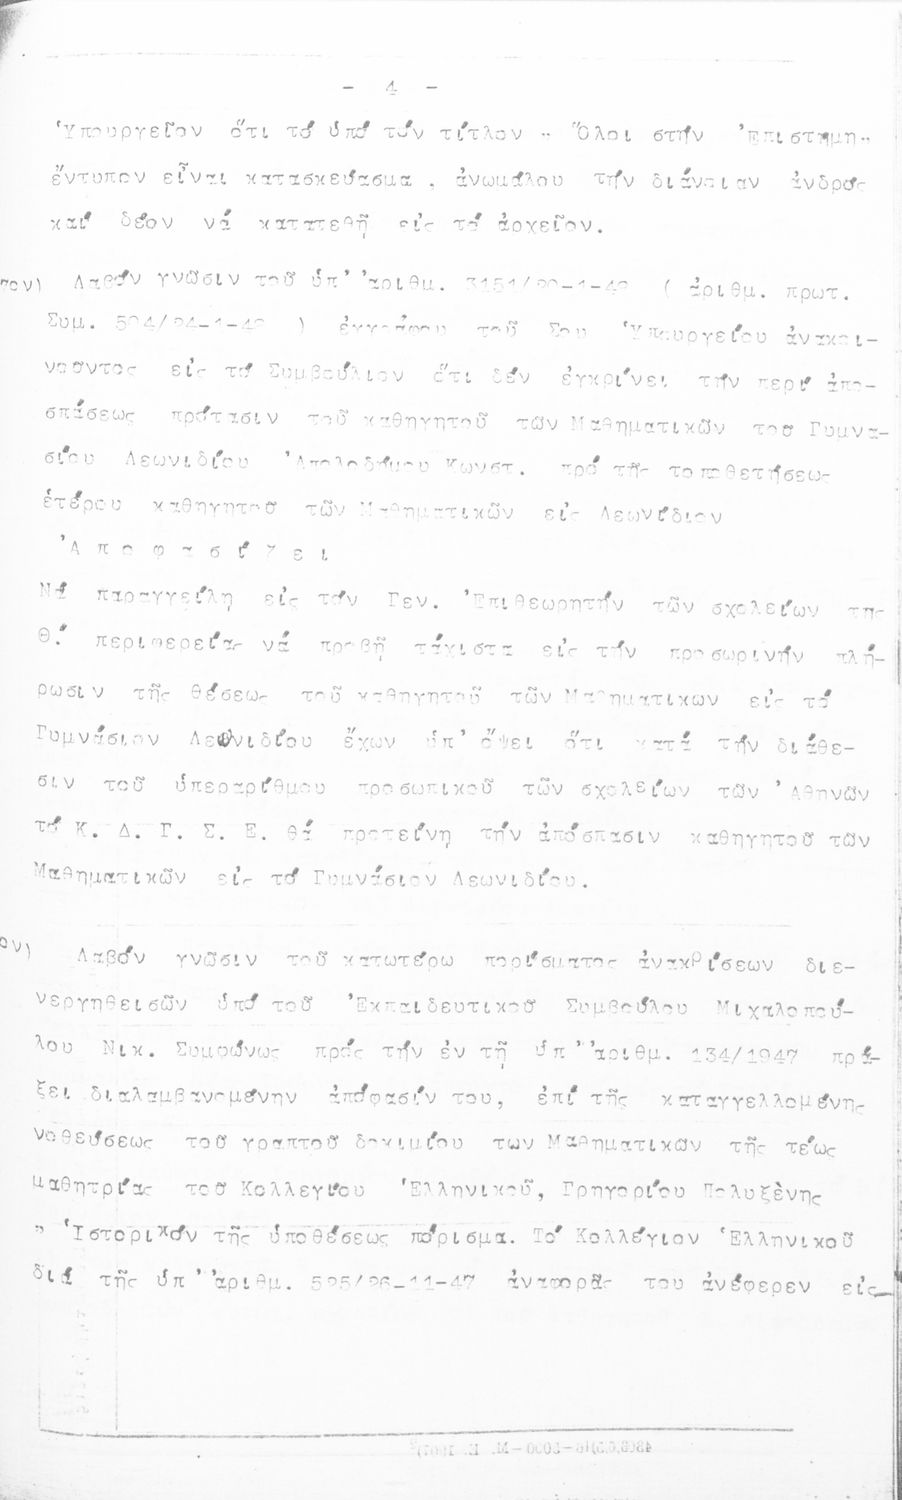 - 4 -
Ὑπουργεῖον ὅτι τό ὑπό τόν τίτλον " Ὅλοι στήν Ἐπιστήμη"
ἔντυπον εἶναι κατασκεύασμα . ἀνωμάλου τήν διάνοιαν ἀνδρός
καί δέον νά κατατεθῇ εἰς τό ἀρχεῖον.
πον) Λαβόν γνῶσιν τοῦ ὑπ' ἀριθμ. ( ἀριθμ. πρωτ.
Συμ. ) ἐγγράφου τοῦ Σου Ὑπουργείου ἀνακοι-
νοῦντος εἰς τό Συμβούλιον ὅτι δέν ἐγκρίνει τήν περί ἀπο-
σπάσεως πρότασιν τοῦ καθηγητοῦ τῶν Μαθηματικῶν του Γυμνα-
σίου Λεωνιδίου Ἀπολοδήμου Κωνστ. πρό τῆς τοποθετήσεως
ἑτέρου καθηγητοῦ τῶν Μαθηματικῶν εἰς Λεωνίδιον
Ἀ π ο φ α σ ί ζ ε ι
Νά παραγγείλῃ εἰς τόν Γεν. Ἐπιθεωρητήν τῶν σχολείων της
Θ.' περιφερείας νά προβῇ τάχιστα εἰς τήν προσωρινήν πλή-
ρωσιν τῆς θέσεως τοῦ καθηγητοῦ τῶν Μαθηματικων εἰς τό
Γυμνάσιον Λεωνιδίου ἔχων ὑπ' ὄψει ὅτι κατά τήν διάθε-
σιν τοῦ ὑπεραρίθμου προσωπικοῦ τῶν σχολείων τῶν Ἀθηνῶν
τό Κ. Δ. Γ. Σ. Ε. θά προτείνῃ τήν ἀπόσπασιν καθηγητοῦ τῶν
Μαθηματικῶν εἰς τό Γυμνάσιον Λεωνιδίου.
ον) Λαβόν γνῶσιν τοῦ κατωτέρω πορίσματος ἀνακρίσεων διε-
νεργηθεισῶν ὑπό τοῦ Ἐκπαιδευτικοῦ Συμβούλου Μιχαλοπού-
λου Νικ. Συμφώνως πρός τήν ἐν τῇ ὑπ' ἀριθμ. 134/1947 πρά-
ξει διαλαμβανομένην ἀπόφασίν του, ἐπί τῆς καταγγελλομένης
νοθεύσεως τοῦ γραπτοῦ δοκιμίου των Μαθηματικῶν τῆς τέως
μαθητρίας τοῦ Κολλεγίου Ἑλληνικοῦ, Γρηγορίου Πολυξένης
" Ἱστορικόν τῆς ὑποθέσεως πόρισμα. Τό Κολλέγιον Ἑλληνικοῦ
διά τῆς ὑπ' ἀριθμ. 525/26-11-47 ἀναφορᾶς του ἀνέφερεν εἰς